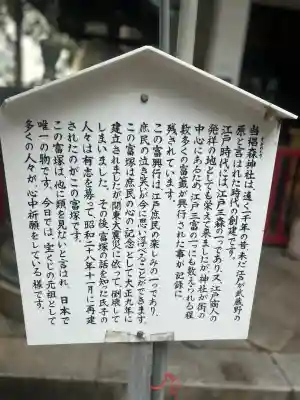 当椙森神社は遠く一千年の昔、未だ江戸が武蔵野の
原と云はれた時代の創建です。
江戸時代には、江戸三森の一つであり、又江戸商人の
発祥の地としても栄えて来ましたが、神社が街の
中心にあるため江戸三富の一つにも数えられる程
数多くの富籤が興行された事が記録に
残されています。
この富興行は、江戸庶民の楽しみの一つであり、
庶民の泣き笑いが今に思い浮べることができます。
この富塚は庶民の心の記念として大正九年に
建立されましたが関東大震災に依って、倒壊して
しまいました。その後、富塚の話を知った氏子の
人々は有志を募って、昭和二十八年十一月に再建
されたのがこの富塚です。
この富塚は、他に類を見ないと云はれ、日本で
唯一の物です。今日では、宝くじの元祖として
多くの人々が心中祈願をしている様です。